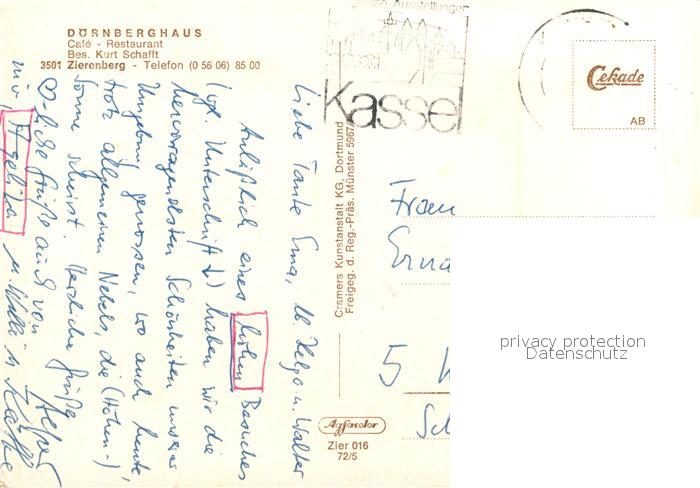 DÖRNBERGHAUS
Café - Restaurant
Bes. Kurt Schafft
3501 Zierenberg - Telefon (0 56 06) 85 00
Liebe Tante Erna, lb. Helga u. Walter
Anläßlich eines hohen Besuches
(vgl. Unterschrift ↓) haben wir die
hervorragendsten Schönheiten unserer
Umgebung genossen, wo auch heute,
trotz allgemeinen Nebels, die (Höhen-)
Sonne scheint. Herzliche Grüße
♡-liche Grüße auch von
mir,
Kassel
Cramers Kunstanstalt KG, Dortmund
Freigeg. d. Reg.-Präs. Münster 5967
Cekade
AB
Frau
Erna
5
Agfacolor
Zier 016
72/5
privacy protection
Datenschutz